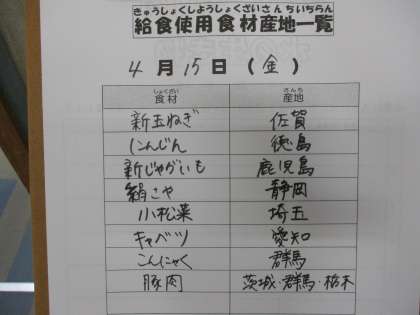 きゅうしょくしようしょくざいさんちいちらん
給食使用食材産地一覧
4月15日(金)
しょくざい さんち
食材 産地
新玉ねぎ 佐賀
にんじん 徳島
新じゃがいも 鹿児島
絹さや 静岡
小松菜 埼玉
キャベツ 愛知
こんにゃく 群馬
豚肉 茨城・群馬・栃木